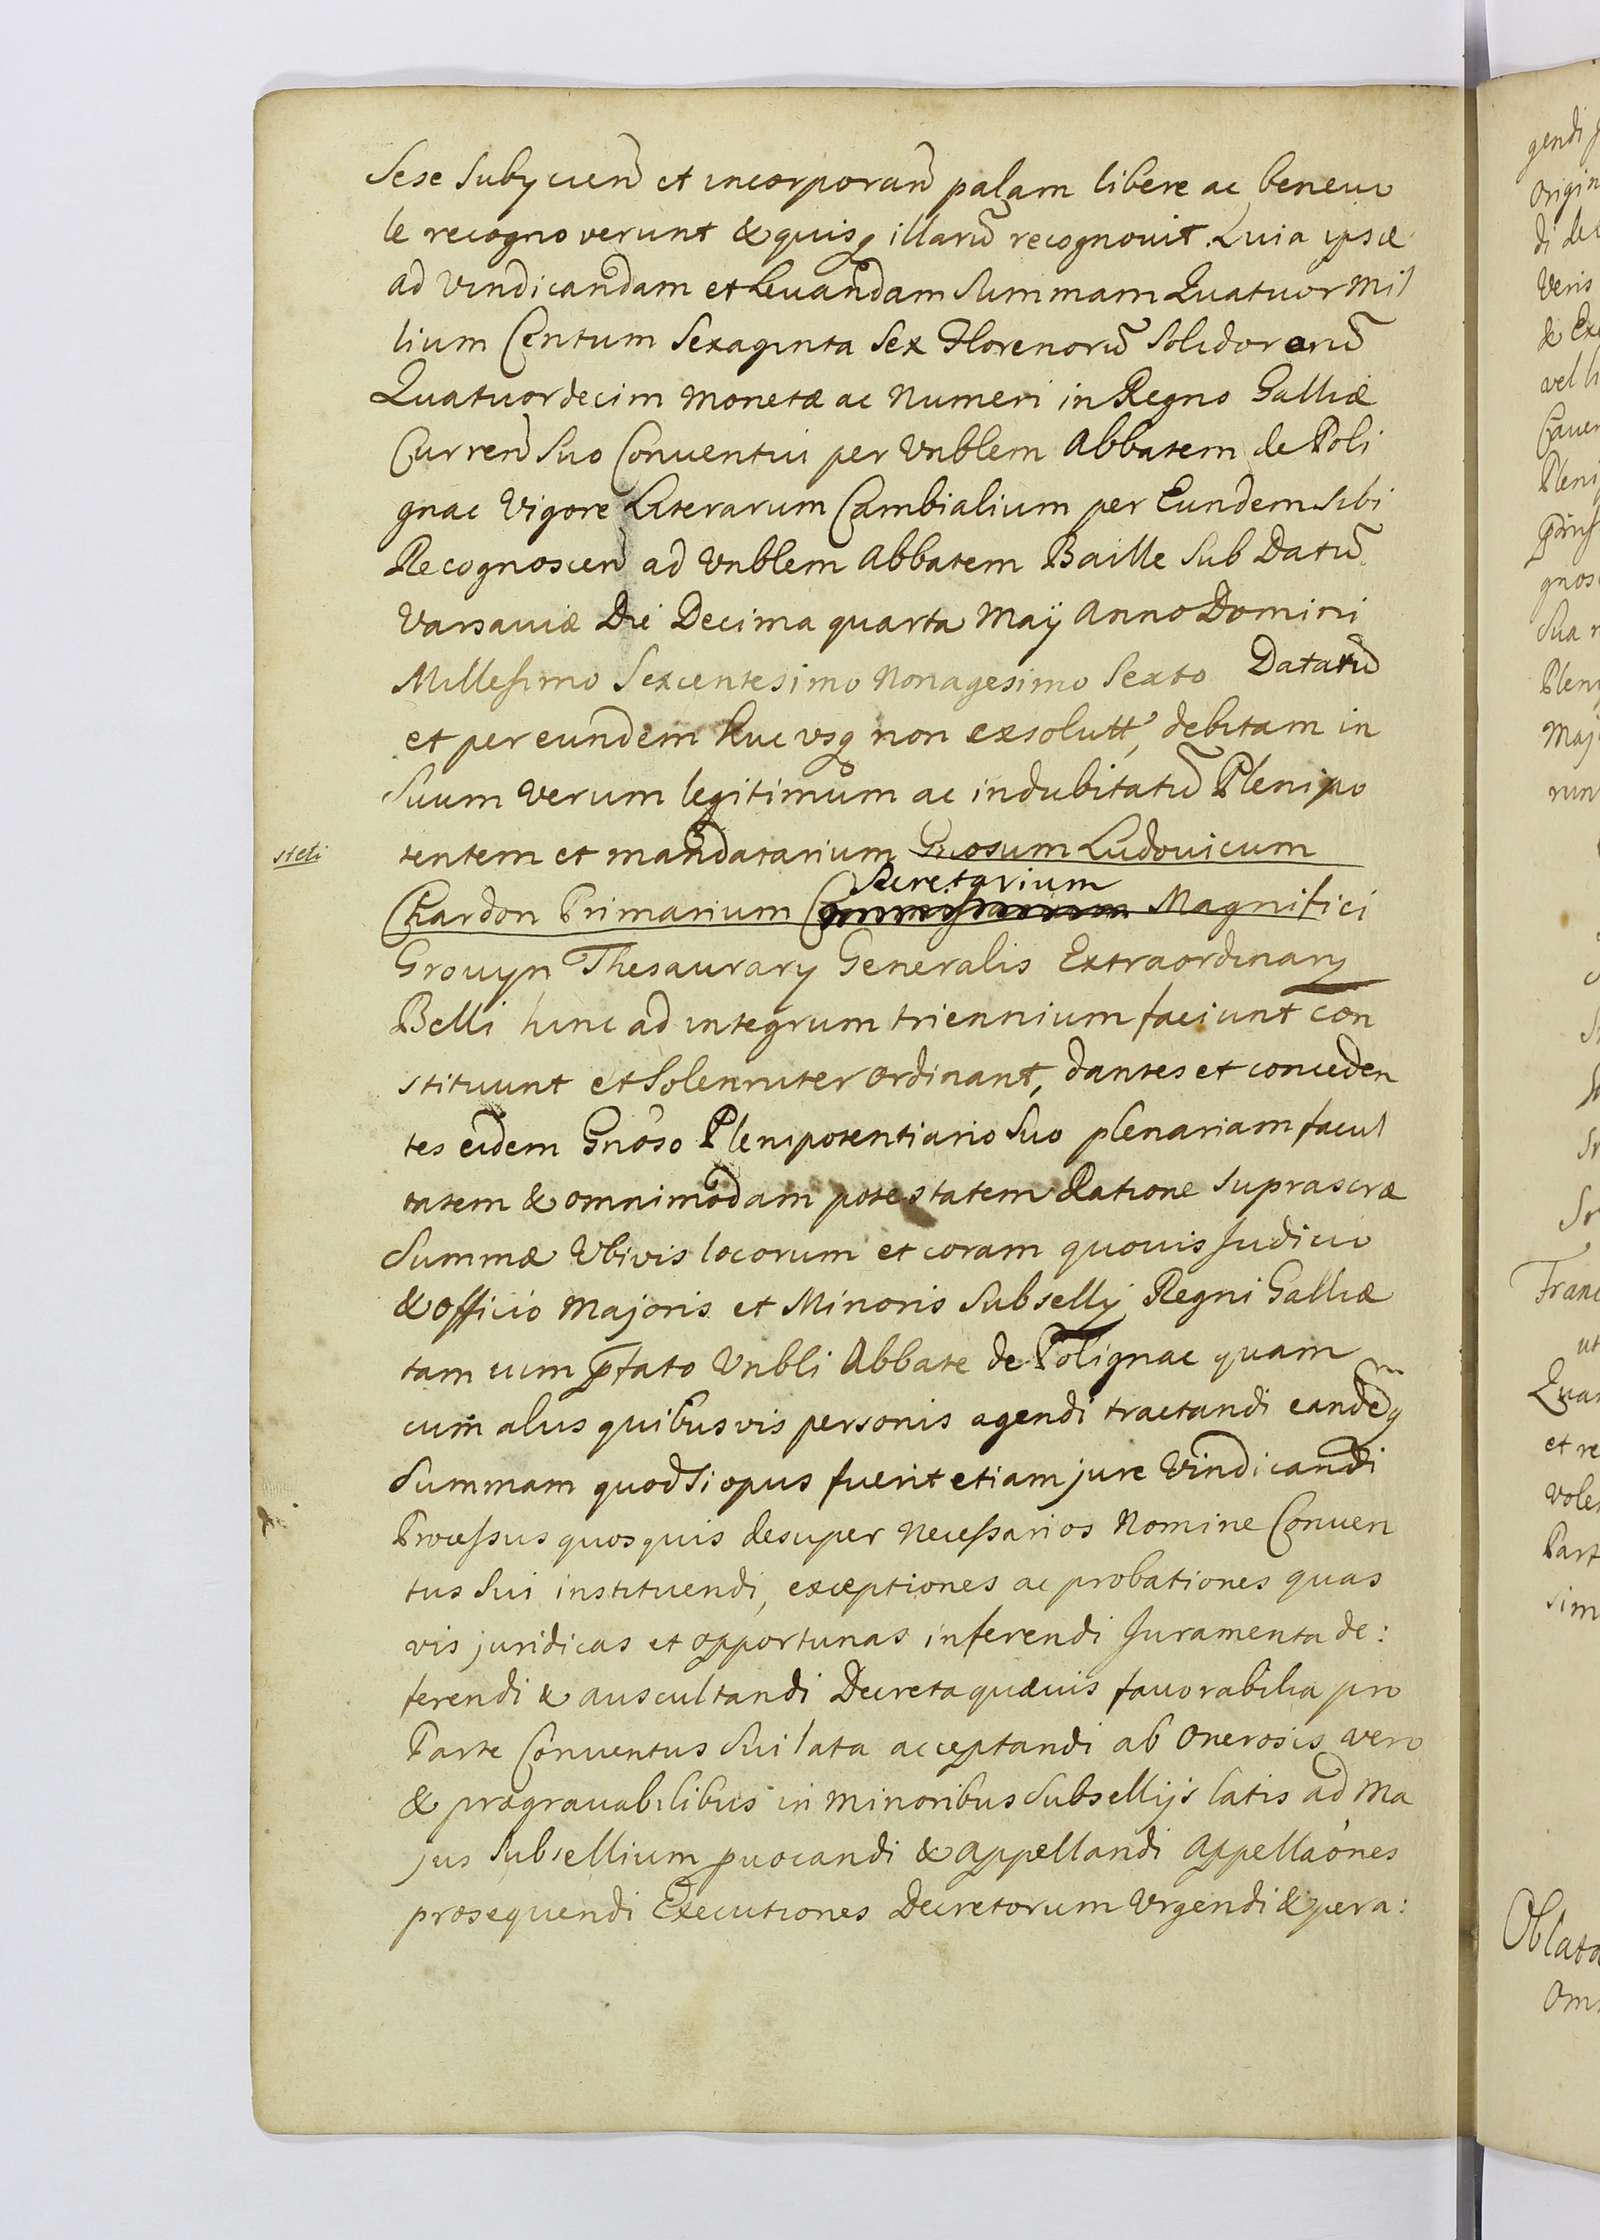 Sese Subycien et incorporan palam libere ac benevo
le recognoverunt & quisq illarū recognouit. Quia ipsæ
ad Vindicandam et Levandam Summam Quatuor Mil
lium Centum Sexaginta Sex Florenorū Solidorarū
Quatuordecim Monetæ ac Numeri in Regno Galliæ
Curren Suo Conventui per Vnblem Abbatem de Poli
gnac Vigore Literarum Cambialium per Eundem Sibi
Recognoscen ad Vnblem Abbatem Baille Sub Datū
Varsaviæ Die Decima quarta Maÿ Anno Domini
Millesimo Sexcentesimo Nonagesimo Sexto Datatū
et per eundem huc vsq non exsolutt, debitam in
Suum Verum legitimum ac indubitatū Plenipo
steti
tentem et mandatarium Gnosum Ludovicum
Secretarium
Chardon Primarium Magnifici
Grouyn Thesaurary Generalis Extraordinary
Belli hinc ad integrum triennium faciunt con
stituunt et Solenniter ordinant, dantes et conceden
tes eidem Gnoso Plenipotentiario Suo plenariam facul
tatem & omnimodam potestatem Ratione Suprascræ
Summæ Vbivis locorum et coram quovis Judicio
& officio Majoris et Minoris Subselly Regni Galliæ
tam cum pfato Vnbli Abbate de Polignac quam
cum alys quibusvis personis agendi tractandi eandemq
Summam quod Si opus fuerit etiam jure Vindicandi
Processus quosquis desuper Necessarios Nomine Conven
tus Sui instituendi, exceptiones ac probationes quas
vis juridicas et opportunas inferendi Juramenta de:
ferendi & auscultandi Decreta quævis favorabilia pro
Parte Conventus Sui lata acceptandi ab Onerosis vero
& prægravabilibus in minoribus Subsellijs latis ad Ma
jus Subsellium pvocandi & appellandi Appellaones
prosequendi Executiones Decretorum Vrgendi & pera:
gendi
Origin
Veris
vel
Sua
Maj
Franc
ut
Quar
et re
Part
sim
Oblata